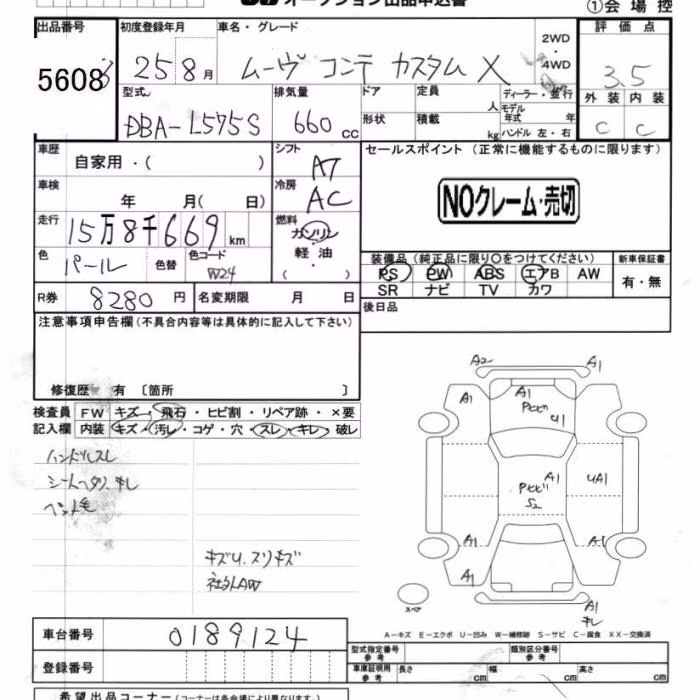 オークション出品申込書
①会場控
出品番号 初度登録年月 車名・グレード 2WD・4WD 評価点
5608 25 8月 ムーヴ コンテ カスタム X 3.5
型式 排気量 ドア 定員 人 ディーラー・並行 外装 内装
DBA-L575S 660cc 形状 積載 kg モデル年式 年 ハンドル 左・右 C C
車歴 自家用・( ) シフト AT セールスポイント (正常に機能するものに限ります)
車検 年 月( 日) 冷房 AC NOクレーム・売切
走行 15万8千669km 燃料 ガソリン・軽油・( )
色 パール 色替 色コード W24 装備品 (純正品に限り○をつけてください) 新車保証書
PS PW ABS エアB AW 有・無
SR ナビ TV カワ
R券 8280円 名変期限 月 日 後日品
注意事項申告欄(不具合内容等は具体的に記入して下さい)
修復歴 有 〔箇所 〕
検査員記入欄 FW キズ・飛石・ヒビ割・リペア跡・×要
内装 キズ・汚レ・コゲ・穴・スレ・キレ・破レ
ハンドルスレ
シートヘタリ、キレ
ペット毛
キズU、スリキズ
社外AW
A2 A1
A1 A1
Pヒビ
U1
A1 UA1
Pヒビ
S2
A1 A1
A1
A1
キレ
スペア
A-キズ E-エクボ U-凹み W-補修跡 S-サビ C-腐食 XX-交換済
車台番号 0189124
型式指定番号 参考 類別区分番号 参考
登録番号 車庫証明用 参考 長さ cm 幅 cm 高さ cm
希望出品コーナー (コーナーは各会場により異なります)